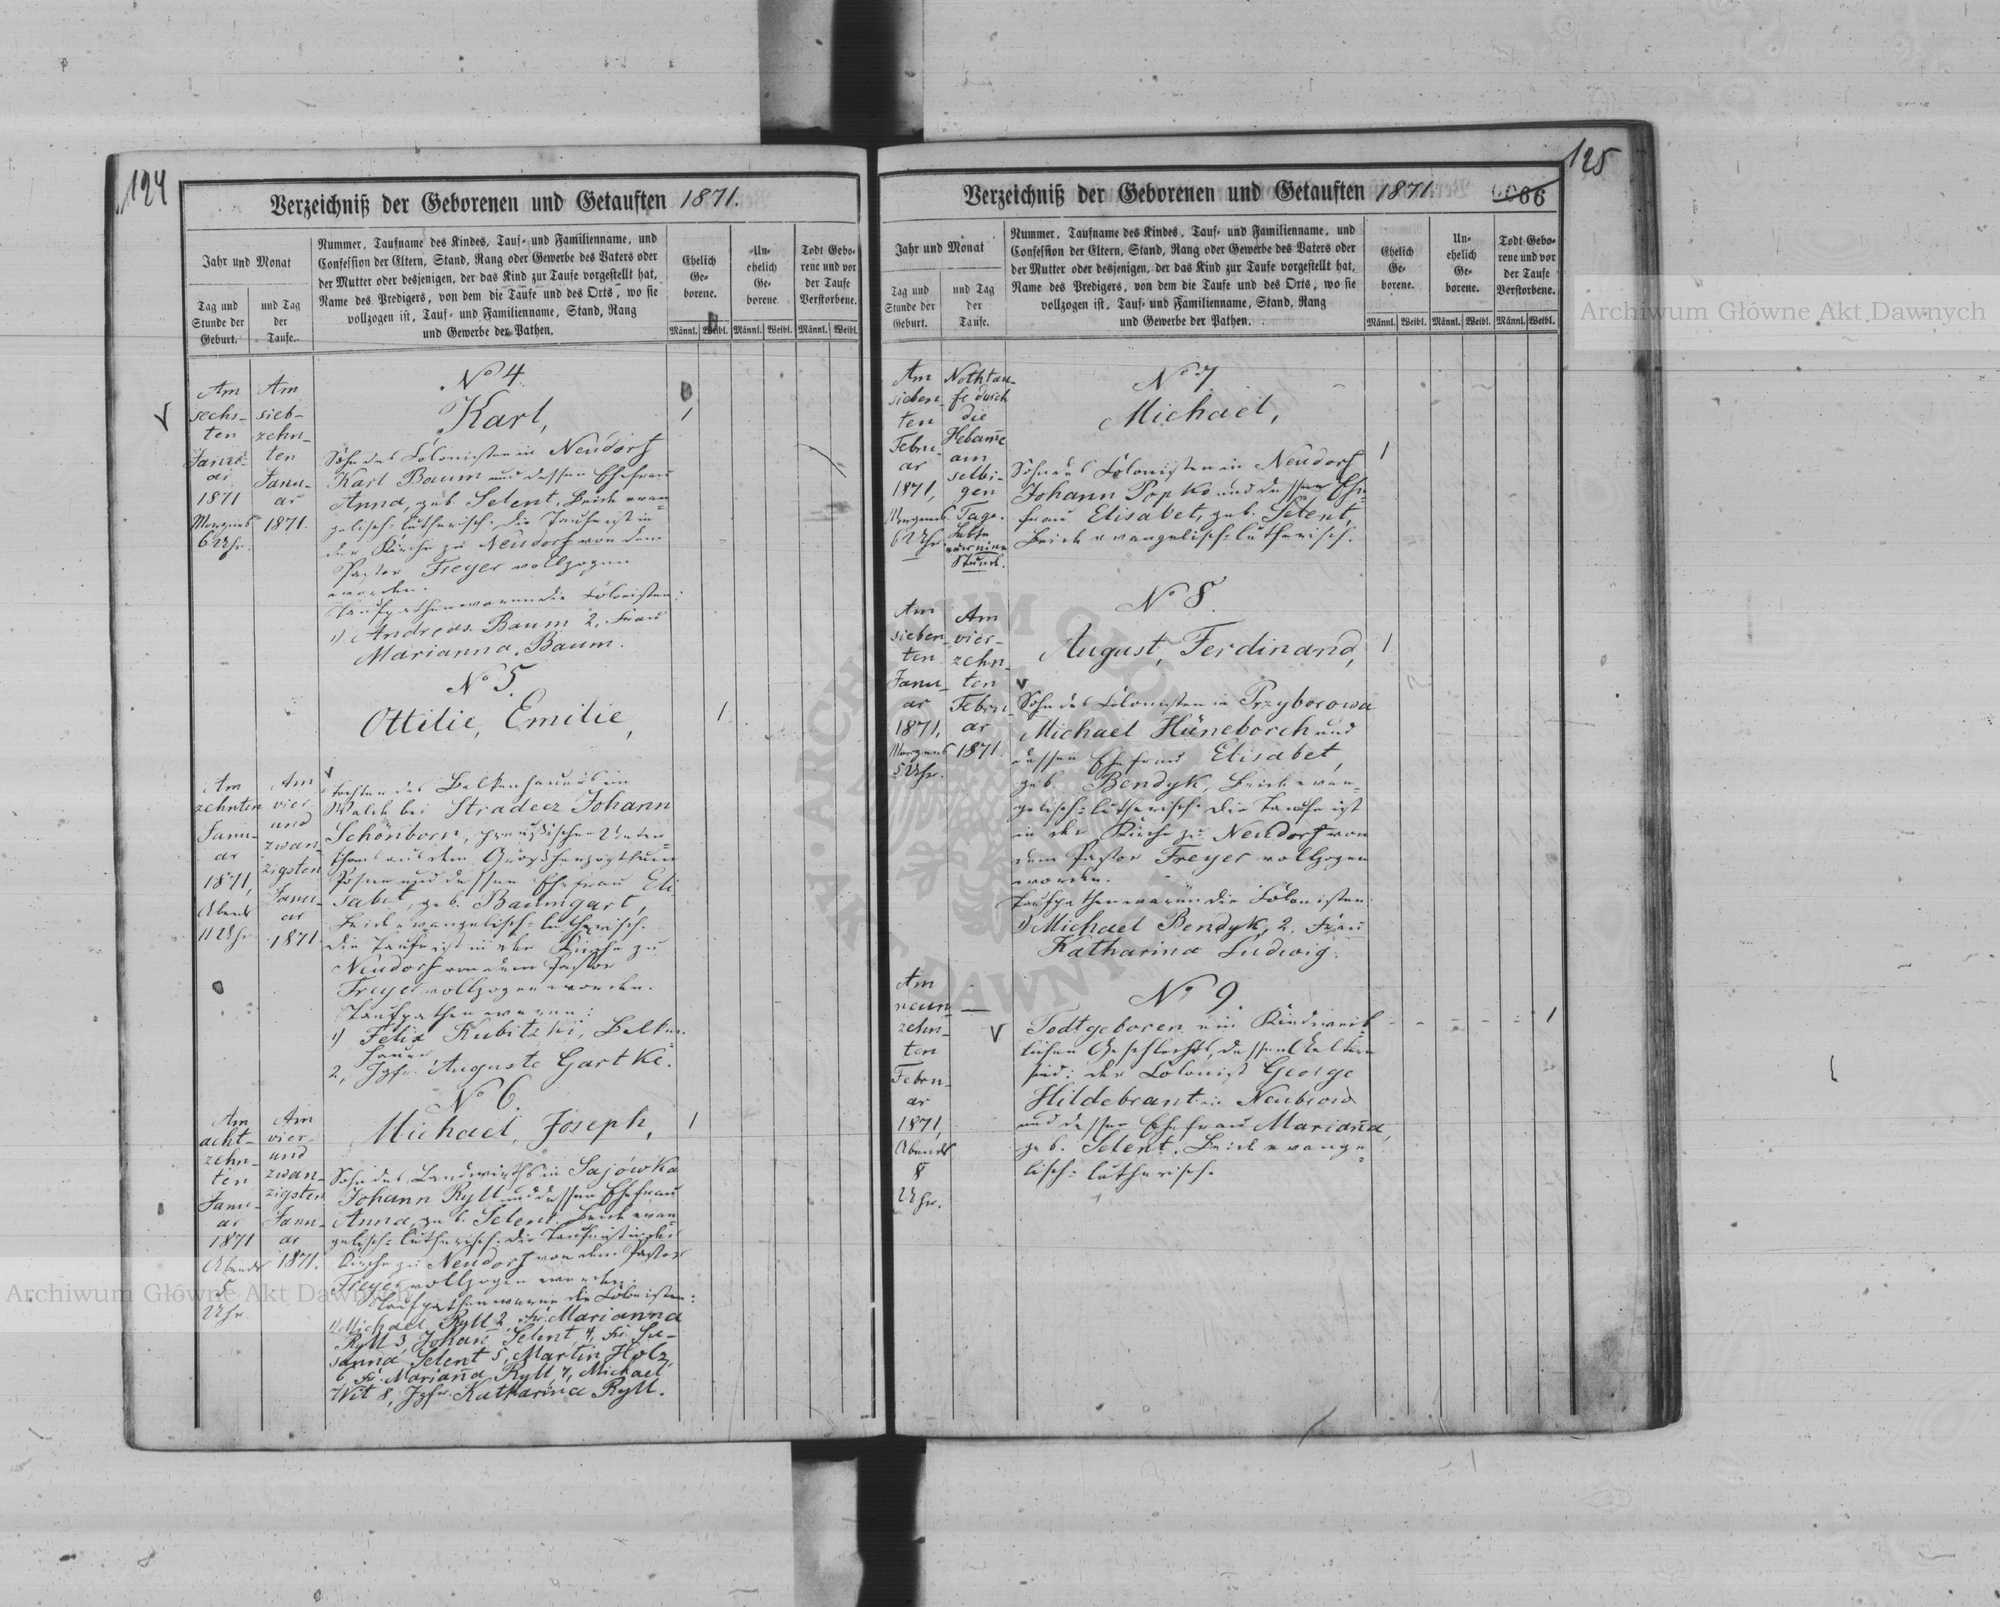 124
Verzeichniß der Geborenen und Getauften 1871.
Jahr und Monat
Tag und
Stunde der
Geburt.
und Tag
der
Taufe.
Nummer, Taufname des Kindes, Tauf- und Familienname, und
Confession der Eltern, Stand, Rang oder Gewerbe des Vaters oder
der Mutter oder desjenigen, der das Kind zur Taufe vorgestellt hat,
Name des Predigers, von dem die Taufe und des Orts, wo sie
vollzogen ist, Tauf- und Familienname, Stand, Rang
und Gewerbe der Pathen.
Ehelich
Ge-
borene.
Un-
ehelich
Ge-
borene
Todt Gebo-
rene und vor
der Taufe
Verstorbene.
Männl. Weibl. Männl. Weibl. Männl. Weibl.
Am
sechs-
ten
Janu-
ar
1871
Morgens
6 Uhr.
Am
sieb-
zehn-
ten
Janu-
ar
1871.
No 4.
Karl,
1
Sohn des Colonisten in Neudorf
Karl Baum und dessen Ehefrau
Anna, geb. Selent, Beide evan-
gelisch-lutherisch. Die Taufe ist in
der Kirche zu Neudorf von dem
Pastor Freyer vollzogen
worden.
Taufpathen waren die Colonisten:
1) Andreas Baum 2, Frau
Marianna Baum.
No 5.
Ottilie, Emilie,
1
Am
zehnten
Janu-
ar
1871,
Abends
11 Uhr
Am
vier
und
zwan-
zigsten
Janu-
ar
1871
Tochter des Balkenhauers im
Walde bei Stradecz Johann
Schönborn, preußischen Unter-
thans aus dem Großherzogthum
Posen und dessen Ehefrau Eli-
sabet, geb. Baumgart,
Beide evangelisch-lutherisch.
Die Taufe ist in der Kirche zu
Neudorf von dem Pastor
Freyer vollzogen worden.
Taufpathen waren:
1) Felix Kubitzki, Balken-
hauer
2, Jgfr. Auguste Gartke.
No 6.
Michael, Joseph,
1
Am
acht-
zehn-
ten
Janu-
ar
1871
Abends
5
Uhr.
Am
vier-
und
zwan-
zigsten
Janu-
ar
1871.
Sohn des Landwirths in Sajówka
Johann Ryll und dessen Ehefrau
Anna, geb. Selent. Beide evan-
gelisch-lutherisch. Die Taufe ist in der
Kirche zu Neudorf von dem Pastor
Freyer vollzogen worden.
Taufpathen waren die Colonisten:
1) Michael Ryll 2, Fr. Marianna
Ryll 3, Johan̄ Selent 4, Fr. Su-
sanna Selent 5, Martin Holz,
6, Fr. Marian̄a Ryll, 7, Michael
Wit 8, Jgfr. Katharina Ryll.
125
66
Verzeichniß der Geborenen und Getauften 1871.
Jahr und Monat
Tag und
Stunde der
Geburt.
und Tag
der
Taufe.
Nummer, Taufname des Kindes, Tauf- und Familienname, und
Confession der Eltern, Stand, Rang oder Gewerbe des Vaters oder
der Mutter oder desjenigen, der das Kind zur Taufe vorgestellt hat,
Name des Predigers, von dem die Taufe und des Orts, wo sie
vollzogen ist, Tauf- und Familienname, Stand, Rang
und Gewerbe der Pathen.
Ehelich
Ge-
borene.
Un-
ehelich
Ge-
borene.
Todt Gebo-
rene und vor
der Taufe
Verstorbene.
Männl. Weibl. Männl. Weibl. Männl. Weibl.
Am
sieben-
ten
Febru-
ar
1871,
Morgens
6 Uhr.
Nothtau-
fe durch
die
Hebam̄e
am
selbi-
gen
Tage.
Lebte
nur eine
Stunde.
No 7
Michael,
1
Sohn des Colonisten in Neudorf
Johann Popko und dessen Ehe-
frau Elisabet, geb. Selent,
Beide evangelisch-lutherisch.
No 8.
August, Ferdinand,
1
Am
sieben-
ten
Janu-
ar
1871,
Morgens
5 Uhr.
Am
vier-
zehn-
ten
Febru-
ar
1871
Sohn des Colonisten in Przyborowo
Michael Hüneborch und
dessen Ehefrau Elisabet,
geb. Bendyk, Beide evan-
gelisch-lutherisch. Die Taufe ist
in der Kirche zu Neudorf von
dem Pastor Freyer vollzogen
worden.
Taufpathen waren die Colonisten:
1) Michael Bendyk, 2, Frau
Katharina Ludwig.
No 9.
Am
neun-
zehn-
ten
Febru-
ar
1871,
Abends
8
Uhr.
Todtgeboren ein Kind weib-
lichen Geschlechts, dessen Eltern
sind: der Colonist George
Hildebrant in Neubrow
und dessen Ehefrau Marian̄a,
geb. Selent. Beide evange-
lisch-lutherisch.
1
Archiwum Główne Akt Dawnych
Archiwum Główne Akt Dawnych
ARCHIWUM GŁÓWNE AKT DAWNYCH